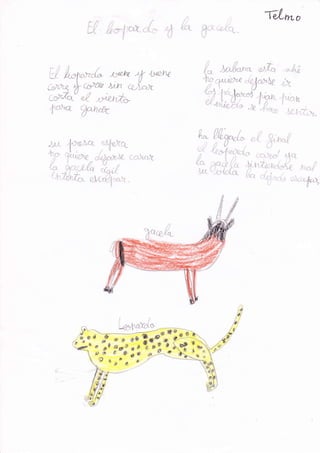 Telmo
El leopardo y la gacela.
El leopardo viene y viene
corre y corre sin cesar
corta el viento
para ganar
la sabana esta ahí
no quiere dejarse ir
los pájaros pian pian
el miedo se hace sentir.
su presa espera
no quiere dejarse cazar
la gacela ágil
intenta escapar.
ha llegado el final
el leopardo cazó ya
la gacela sintiendose mal
su cola ha dejado escapar.
gacela
Leopardo